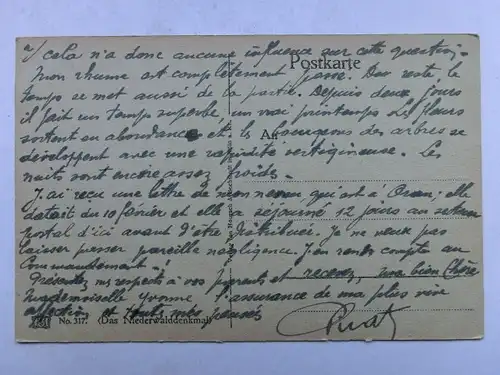 2) cela n'a donc aucune influence sur cette question.
Postkarte
Mon rhume est complètement passé. Du reste le
temps se met aussi de la partie. Depuis deux jours
il fait un temps superbe, un vrai printemps. Les fleurs
An
sortent en abondance et les bourgeons des arbres se
développent avec une rapidité vertigineuse. Les
nuits sont encore assez froides.
J'ai reçu une lettre de mon neveu, qui est à Oran; elle
datait du 10 février et elle a séjourné 12 jours au secteur
postal d'ici avant d'être distribuée. Je ne veux pas
laisser passer pareille négligence. J'en rends compte au
Commandement.
Présentez mes respects à vos parents et recevez, ma bien Chère
Mademoiselle Yvonne, l'assurance de ma plus vive
affection et toutes mes pensées
No. 317. (Das Niederwalddenkmal)